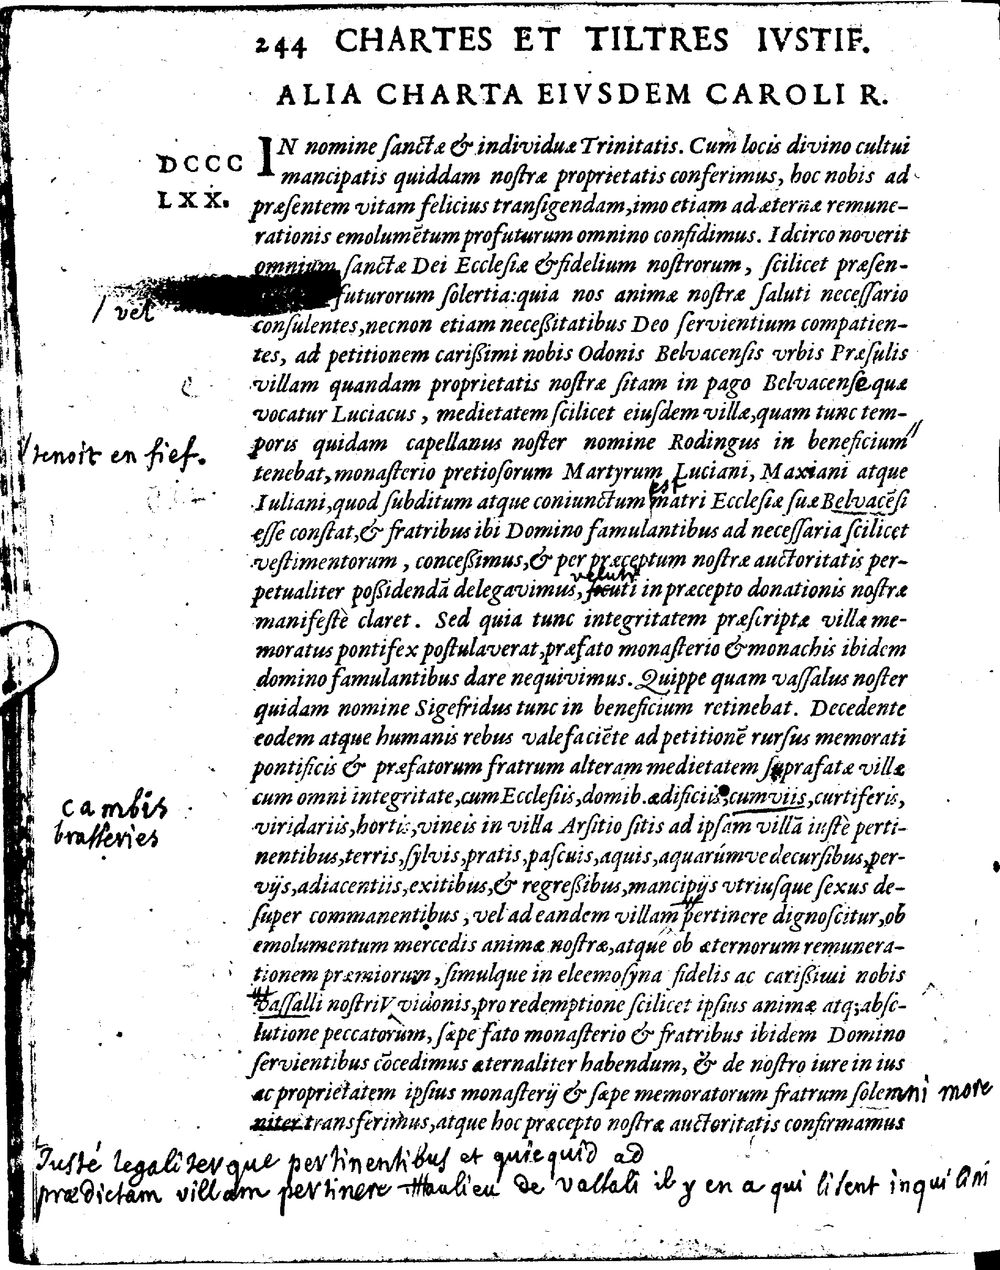 244 CHARTES ET TILTRES IVSTIF.
ALIA CHARTA EIVSDEM CAROLI R.
DCCC
LXX.
IN nomine ſanctæ & individuæ Trinitatis. Cum locis divino cultui
mancipatis quiddam noſtræ proprietatis conferimus, hoc nobis ad
præſentem vitam felicius tranſigendam, imo etiam ad æternæ remune-
rationis emolumētum profuturum omnino confidimus. Idcirco noverit
omnium ſanctæ Dei Eccleſiæ & fidelium noſtrorum, ſcilicet præſen-
futurorum ſolertia: quia nos animæ noſtræ ſaluti neceſſario
/ vel
conſulentes, necnon etiam neceßitatibus Deo ſervientium compatien-
tes, ad petitionem carißimi nobis Odonis Belvacenſis vrbis Præſulis
villam quandam proprietatis noſtræ ſitam in pago Belvacenſe quæ
vocatur Luciacus, medietatem ſcilicet eiuſdem villæ, quam tunc tem-
poris quidam capellanus noſter nomine Rodingus in beneficium //
// tenoit en fief.
tenebat, monaſterio pretioſorum Martyrum Luciani, Maxiani atque
est
Iuliani, quod ſubditum atque coniunctum matri Eccleſiæ ſuæ Belvacēſi
eſſe conſtat, & fratribus ibi Domino famulantibus ad neceſſaria ſcilicet
veſtimentorum, conceßimus, & per præceptum noſtræ auctoritatis per-
veluti
petualiter poßidendā delegavimus, ſicuti in præcepto donationis noſtræ
manifeſtè claret. Sed quia tunc integritatem præſcriptæ villæ me-
moratus pontifex poſtulaverat, præfato monaſterio & monachis ibidem
domino famulantibus dare nequivimus. Quippe quam vaſſalus noſter
quidam nomine Sigefridus tunc in beneficium retinebat. Decedente
eodem atque humanis rebus valefaciēte ad petitionē rurſus memorati
pontificis & præfatorum fratrum alteram medietatem ſuprafatæ villæ
cum omni integritate, cum Eccleſiis, domib. ædificiis, cum viis, curtiferis,
cambis
brasseries
viridariis, hortis, vineis in villa Arſitio ſitis ad ipſam villā iuſtè perti-
nentibus, terris, ſylvis, pratis, paſcuis, aquis, aquarúmve decurſibus, per-
vijs, adiacentiis, exitibus, & regreßibus, mancipijs vtriuſque ſexus de-
ſuper commanentibus, vel ad eandem villam pertinere dignoſcitur, ob
emolumentum mercedis animæ noſtræ, atque ob æternorum remunera-
tionem præmiorum, ſimulque in eleemoſyna fidelis ac carißimi nobis
vaſſalli noſtri Vvidonis, pro redemptione ſcilicet ipſius animæ atq; abſo-
lutione peccatorum, ſæpe fato monaſterio & fratribus ibidem Domino
ſervientibus cōcedimus æternaliter habendum, & de noſtro iure in ius
ac proprietatem ipſius monaſterij & ſæpe memoratorum fratrum ſolemni more
niter transferimus, atque hoc præcepto noſtræ auctoritatis confirmamus
Justé legaliterque pertinentibus et quicquid ad
prædictam villam pertinere au lieu de vassali il y en a qui lisent inqui